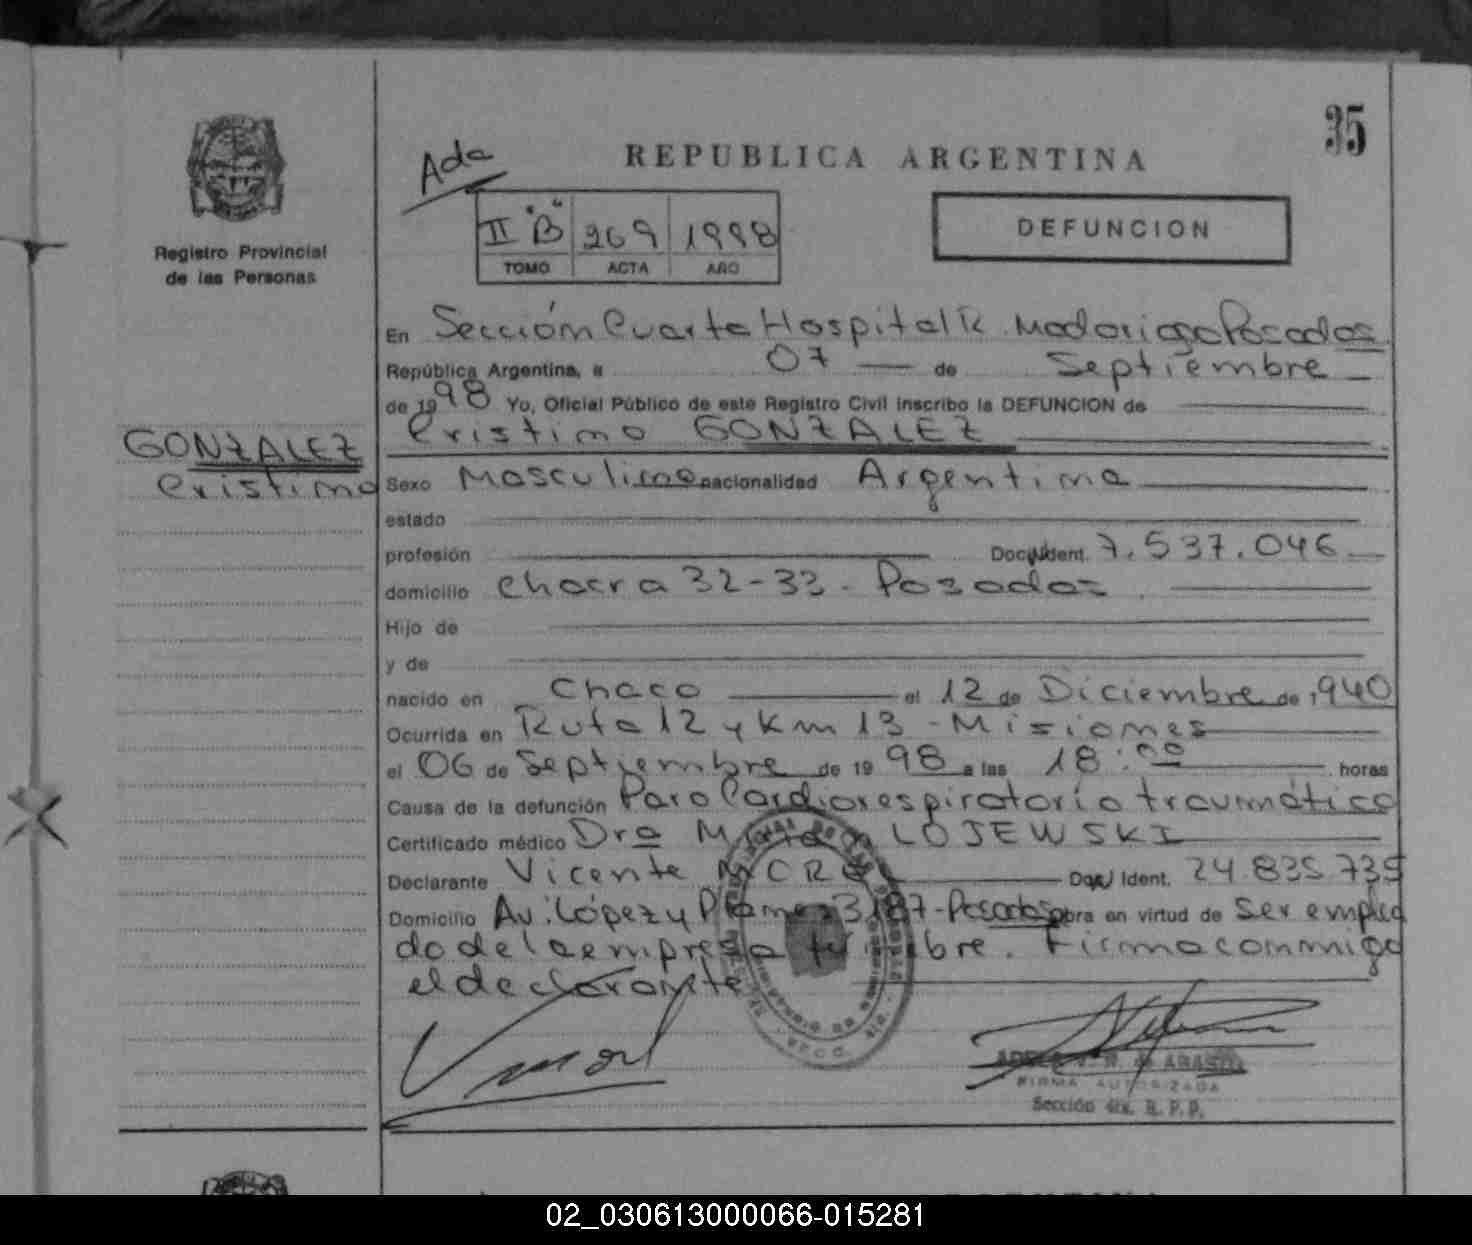 35
REPUBLICA ARGENTINA
Ada
DEFUNCION
II "B" 269 1998
TOMO ACTA AÑO
Registro Provincial
de las Personas
En Sección Cuarta Hospital R. Madariaga Posadas
República Argentina, a 07 de Septiembre
de 1998 Yo, Oficial Público de este Registro Civil inscribo la DEFUNCION de
Cristino GONZALEZ
GONZALEZ
Cristino
Sexo Masculino nacionalidad Argentina
estado
profesión Doc. Ident. 7.537.046
domicilio Chacra 32-33 - Posadas
Hijo de
y de
nacido en Chaco el 12 de Diciembre de 1940
Ocurrida en Ruta 12 y Km 13 - Misiones
el 06 de Septiembre de 1998 a las 18:00 horas
Causa de la defunción Paro Cardiorespiratorio traumático
Certificado médico Dra LOJEWSKI
Declarante Vicente Doc. Ident. 24.835.735
Domicilio Av. López y Planes 3187 - Posadas obra en virtud de Ser emplea
do de la empresa fúnebre. Firma conmigo
el declarante
FIRMA AUTORIZADA
Sección 4ta. R. P. P.
02_030613000066-015281